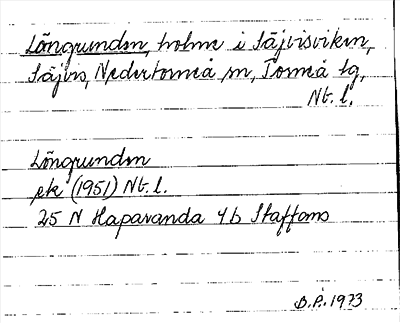 Löngrunden, holme i Säjvisviken,
Säjvis, Nedertorneå sn, Torneå tg,
Nb. l.
Löngrunden
ek (1951) Nb. l.
25 N Haparanda 4b Staffans
B.P. 1973